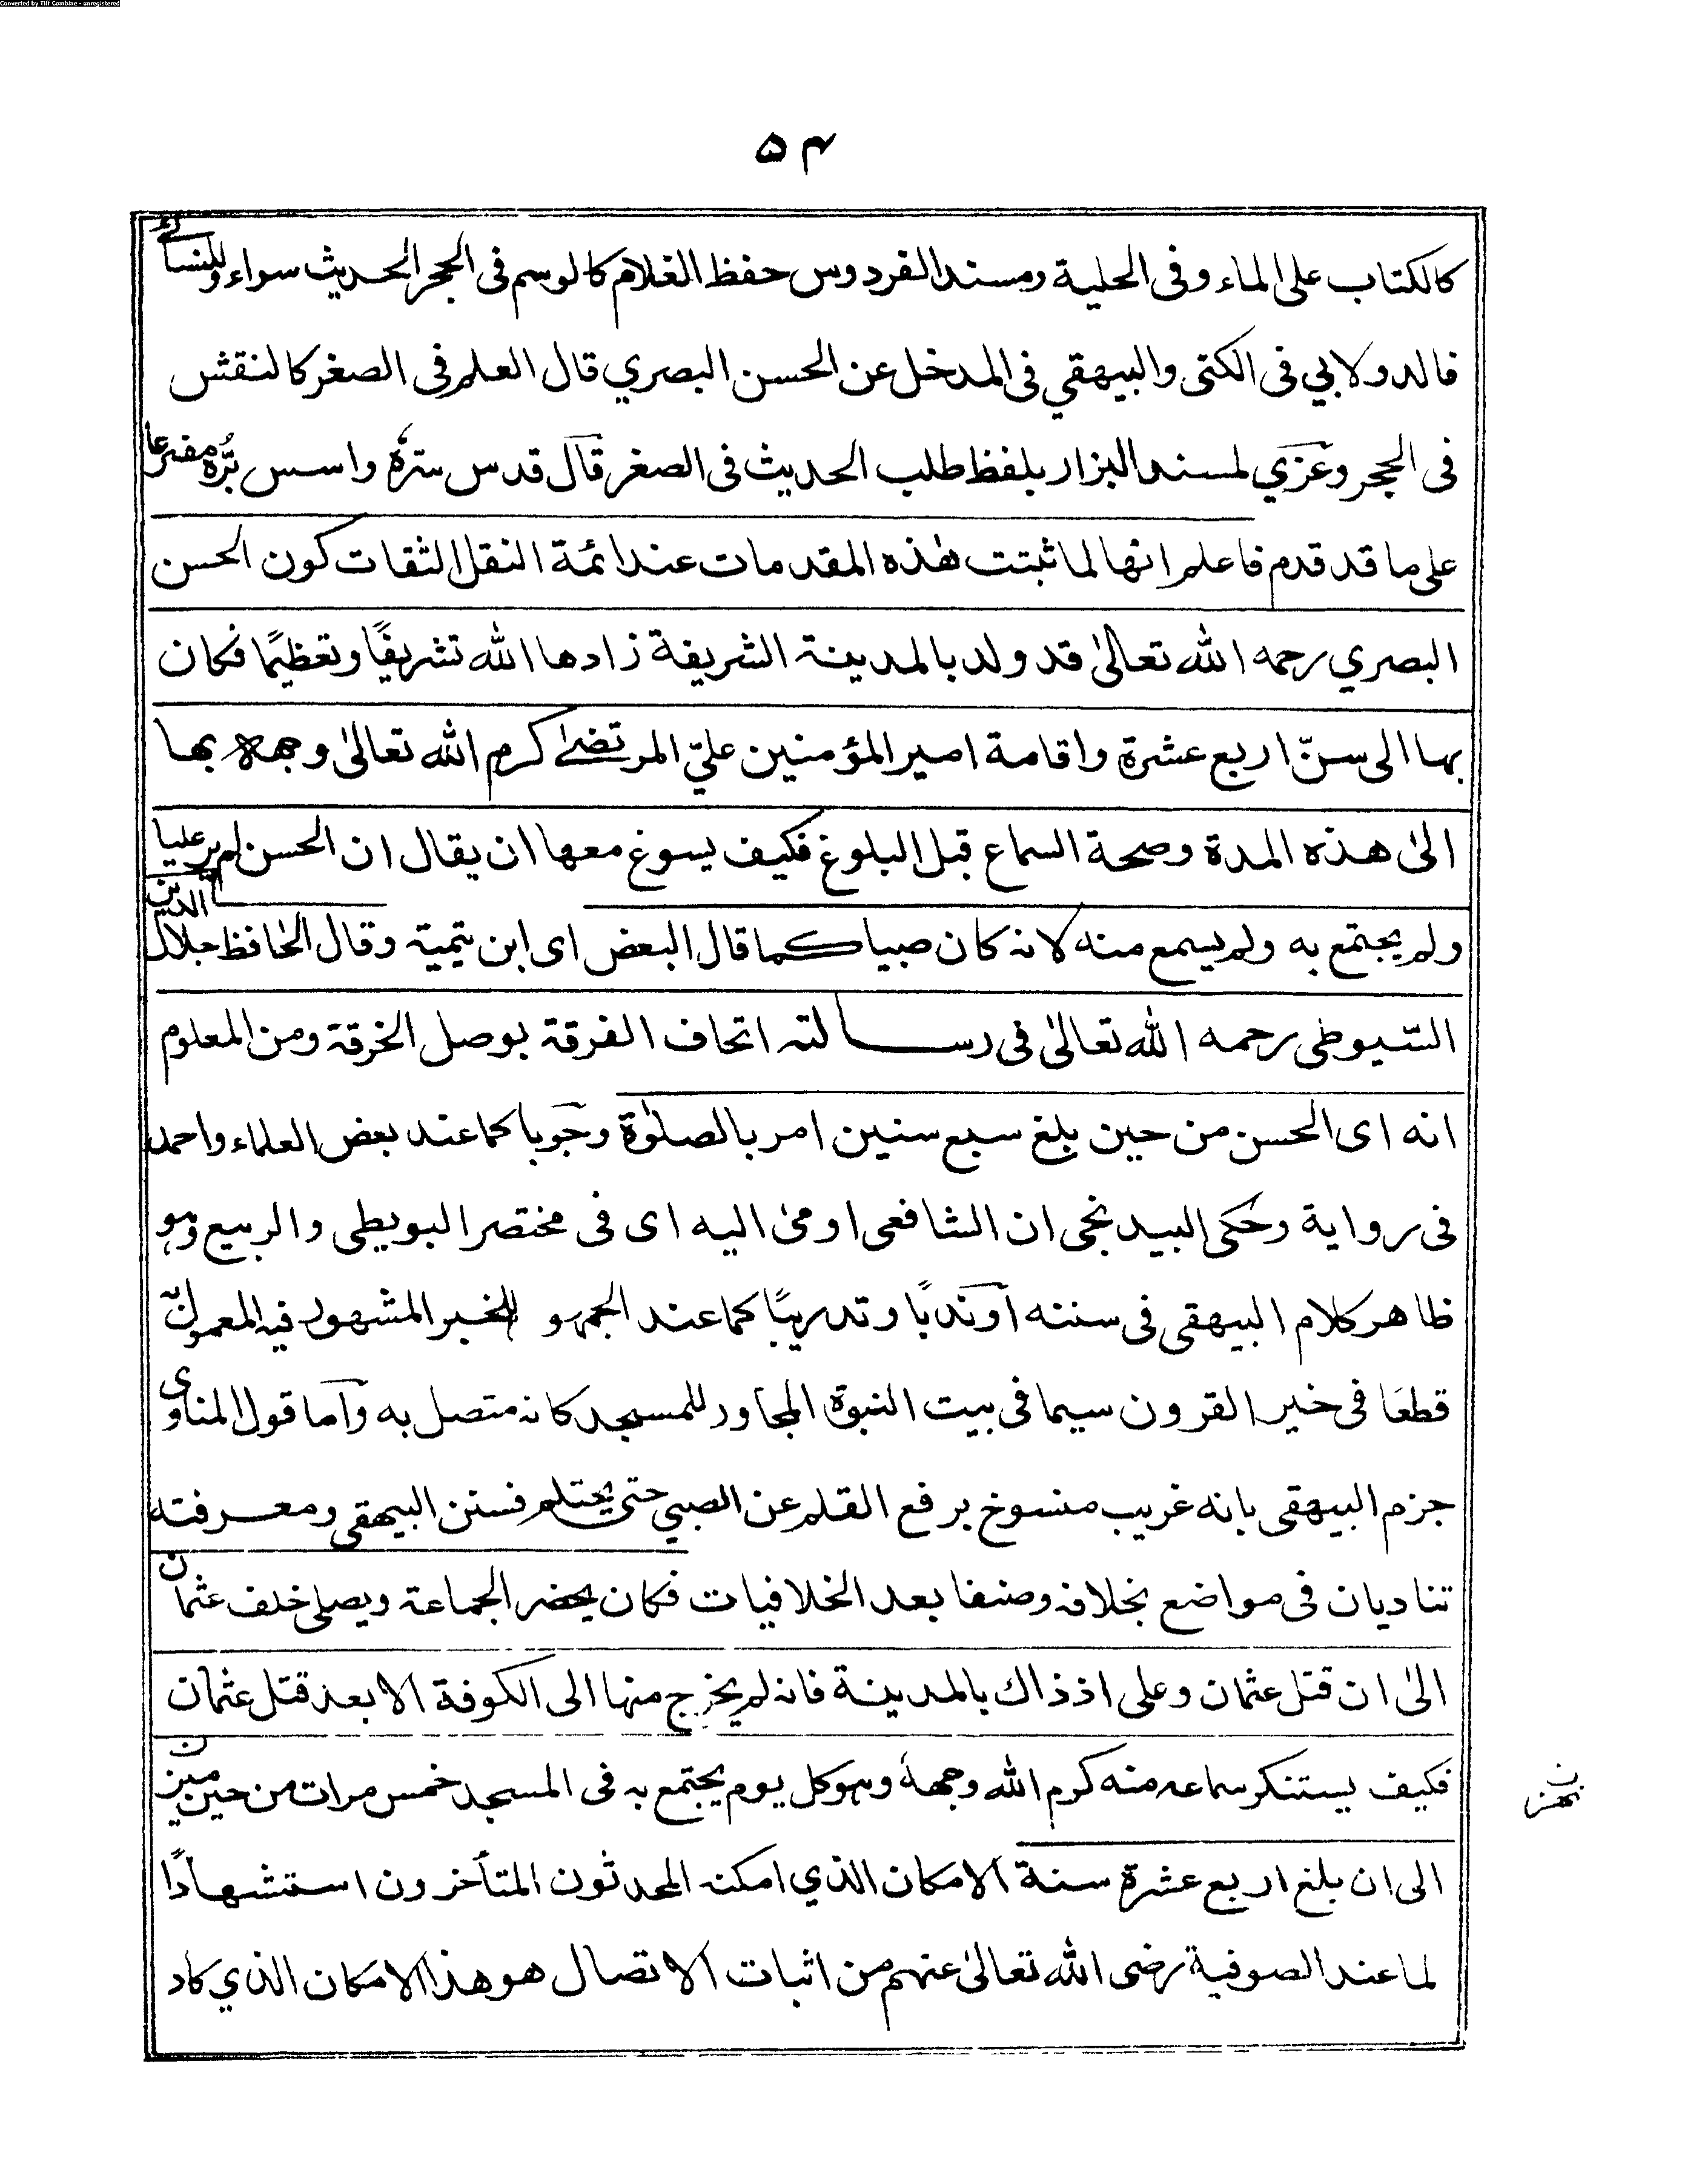 Converted by Tiff Combine - unregistered
۵۴
كالكتاب على الماء وفى الحلية ومسند الفردوس حفظ الغلام كالوسم فى الحجر الحديث سواء وللنسائے
فالدولابي فى الكنى والبيهقي فى المدخل عن الحسن البصري قال العلم فى الصغر كالنقش
فى الحجر وعزي لمسند البزار بلفظ طلب الحديث فى الصغر قال قدس سره واسس بره مفرعا
على ما قد قدم فاعلم انها لما ثبتت هذه المقدمات عند ائمة النقل الثقات كون الحسن
البصري رحمه الله تعالىٰ قد ولد بالمدينة الشريفة زادها الله تشريفًا وتعظيمًا فكان
بها الى سنّ اربع عشرة واقامة امير المؤمنين عليّ المرتضىٰ كرم الله تعالىٰ وجهه بها
الىٰ هذه المدة وصحة السماع قبل البلوغ فكيف يسوغ معها ان يقال ان الحسن لم ير عليا
ولم يجتمع به ولم يسمع منه لانه كان صبيا كما قال البعض اى ابن تيمية وقال الحافظ جلال الدين
السّيوطى رحمه الله تعالىٰ فى رسالته اتحاف الفرقة بوصل الخرقة ومن المعلوم
انه اى الحسن من حين بلغ سبع سنين امر بالصلوٰة وجوبا كما عند بعض العلماء واحمد
فى رواية وحكى البيدنجى ان الشافعى اومىٰ اليه اى فى مختصر البويطى والربيع وهو
ظاهر كلام البيهقى فى سننه اوندبًا وتدريبًا كما عند الجمهو للخبر المشهور فيه المعمول به
قطعًا فى خير القرون سيما فى بيت النبوة المجاور للمسجد كانه متصل به وآما قول المناوى
جزم البيهقى بانه غريب منسوخ برفع القلم عن الصبي حتى يحتلم فسنن البيهقى ومعرفته
تناديان فى مواضع بخلافه وصنفا بعد الخلافيات فكان يحضر الجماعة ويصلى خلف عثمان
الىٰ ان قتل عثمان وعلى اذ ذاك بالمدينة فانه لم يخرج منها الى الكوفة الا بعد قتل عثمان
فكيف يستنكر سماعه منه كرم الله وجهه وهو كل يوم يجتمع به فى المسجد خمس مرات من حين ميز
الى ان بلغ اربع عشرة سنة الامكان الذي امكنه المحدثون المتأخرون استشهادًا
لما عند الصوفية رضى الله تعالىٰ عنهم من اثبات الاتصال هو هذا الامكان الذي كاد